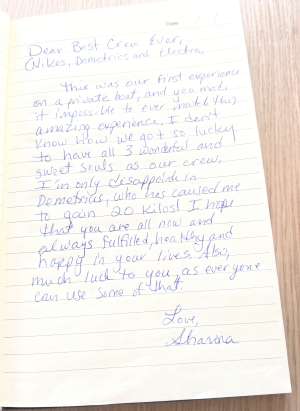 Dear Best Crew Ever,
(Nikos, Demetrics and Electra,
This was our first experience
on a private boat, and you made
it impossible to ever match this
amazing experience. I don't
know how we got so lucky
to have all 3 wonderful and
sweet souls as our crew.
I'm only disappointe in
Demetrius, who has caused me
to gain 20 kilos! I hope
that you are all now and
always fulfilled, healthy and
happy in your lives. Also,
much luck to you, as everyone
can use some of that.
Love,
Sharina